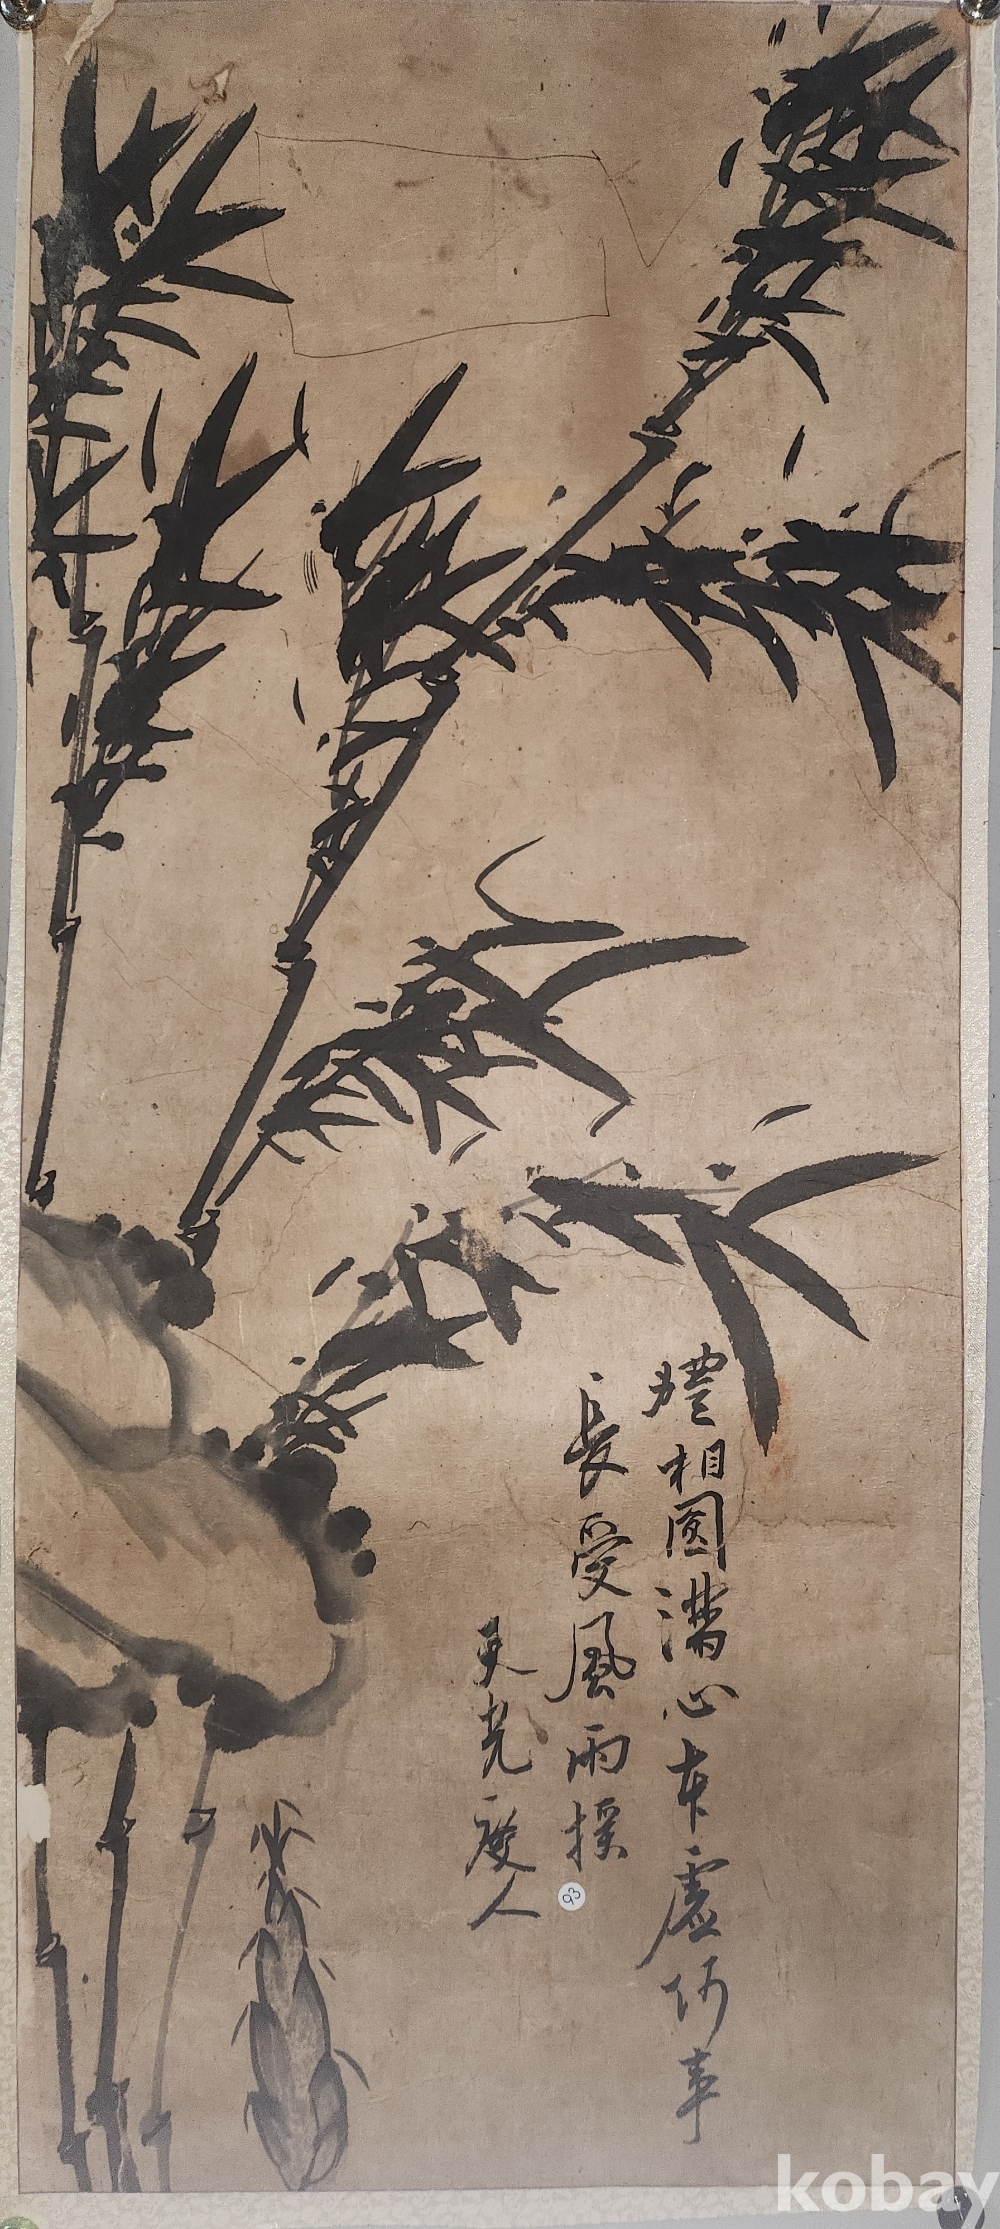 體相圓滿心本虛何事
長受風雨揉
天光度人
93
kobay